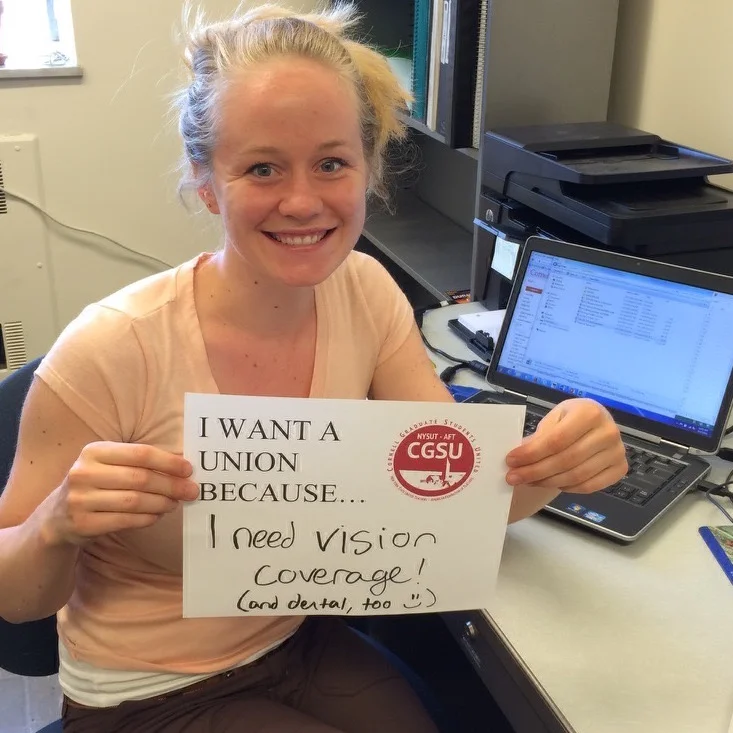 I WANT A
UNION
BECAUSE...
I need vision
coverage!
(and dental, too :))
CORNELL GRADUATE STUDENTS UNITED
NYSUT - AFT
CGSU